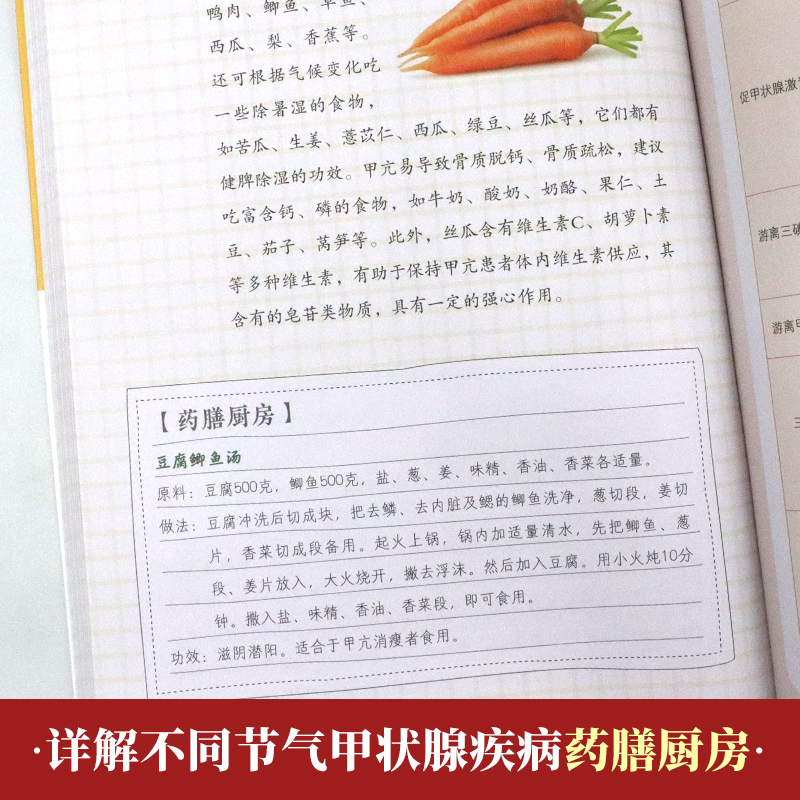 鸭肉、鲫鱼、草鱼、
西瓜、梨、香蕉等。
还可根据气候变化吃
一些除暑湿的食物，
如苦瓜、生姜、薏苡仁、西瓜、绿豆、丝瓜等，它们都有
健脾除湿的功效。甲亢易导致骨质脱钙、骨质疏松，建议
吃富含钙、磷的食物，如牛奶、酸奶、奶酪、果仁、土
豆、茄子、莴笋等。此外，丝瓜含有维生素C、胡萝卜素
等多种维生素，有助于保持甲亢患者体内维生素供应，其
含有的皂苷类物质，具有一定的强心作用。
【药膳厨房】
豆腐鲫鱼汤
原料：豆腐500克，鲫鱼500克，盐、葱、姜、味精、香油、香菜各适量。
做法：豆腐冲洗后切成块，把去鳞、去内脏及鳃的鲫鱼洗净，葱切段，姜切
片，香菜切成段备用。起火上锅，锅内加适量清水，先把鲫鱼、葱
段、姜片放入，大火烧开，撇去浮沫。然后加入豆腐。用小火炖10分
钟。撒入盐、味精、香油、香菜段，即可食用。
功效：滋阴潜阳。适合于甲亢消瘦者食用。
促甲状腺激
游离三碘
游离甲
三
·详解不同节气甲状腺疾病药膳厨房·